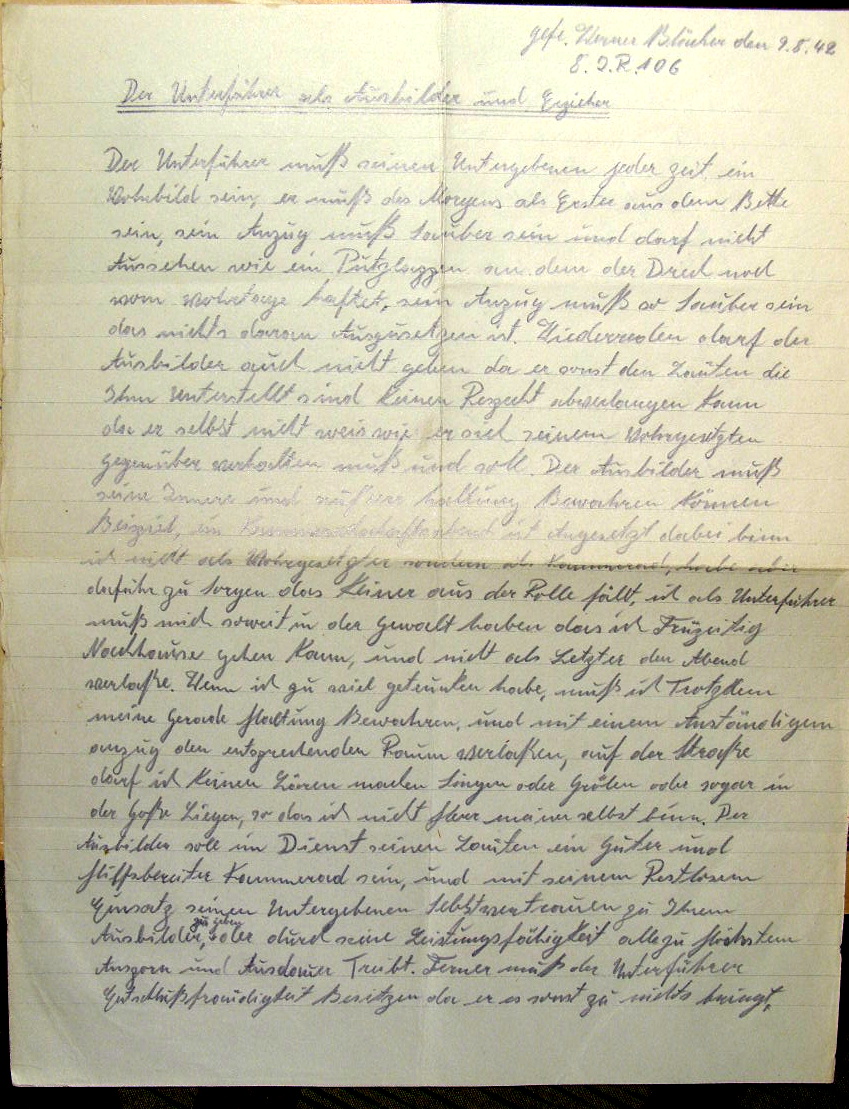 gefr. Werner Blöcher den 9.8.42
8. I.R. 106
Der Unterführer als Ausbilder und Erzieher
Der Unterführer muß seinen Untergebenen jeder zeit ein
Vohrbild sein, er muß des Morgens als Erster aus dem Bette
sein, sein Anzug muß Sauber sein und darf nicht
Aussehen wie ein Putzlappen an dem der Dreck noch
vom vohrtage haftet, sein Anzug muß so Sauber sein
das nichts daran Auszusetzen ist. Wiederreden darf der
Ausbilder auch nicht geben da er sonst den Läuten die
Ihm Unterstellt sind keinen Respeckt abverlangen kann
da er selbst nicht weis wie er sich seinem Vohrgesetzten
gegenüber verhalten muß und soll. Der Ausbilder muß
seine Innere und äußere haltung Bewahren können
Beispiel, ein Kammeradschaftsabend ist Angesetzt dabei binn
ich nicht als Vohrgesetzter sondern als Kammerad, habe aber
daführ zu Sorgen das Keiner aus der Rolle fällt, ich als Unterführer
muß mich soweit in der gewalt haben das ich Früzeitig
Nachhause gehen kann, und nicht als Letzter den Abend
verlaße. Wenn ich zu viel getrunken habe, muß ich Trotzdem
meine Gerade Haltung Bewahren, und mit einem Anständigem
anzug den entsprechenden Raum verlaßen, auf der Straße
darf ich keinen Lären machen Singen oder Grölen oder sogar in
der Goße Liegen, so das ich nicht Herr meiner selbst binn. Der
Ausbilder soll im Dienst seinen Läuten ein Guter und
Hilfsbereiter Kammerad sein, und mit seinem Restlosem
Einsatz seinen Untergebenen Selbstvertrauen zu Ihrem
Ausbilder, zu geben oder durch seine Leistungsfähigkeit alle zu Höchstem
Ansporn und Ausdauer Treibt. Ferner muß der Unterführer
Entschlußfreudigkeit Besitzen da er es sonst zu nichts bringt,